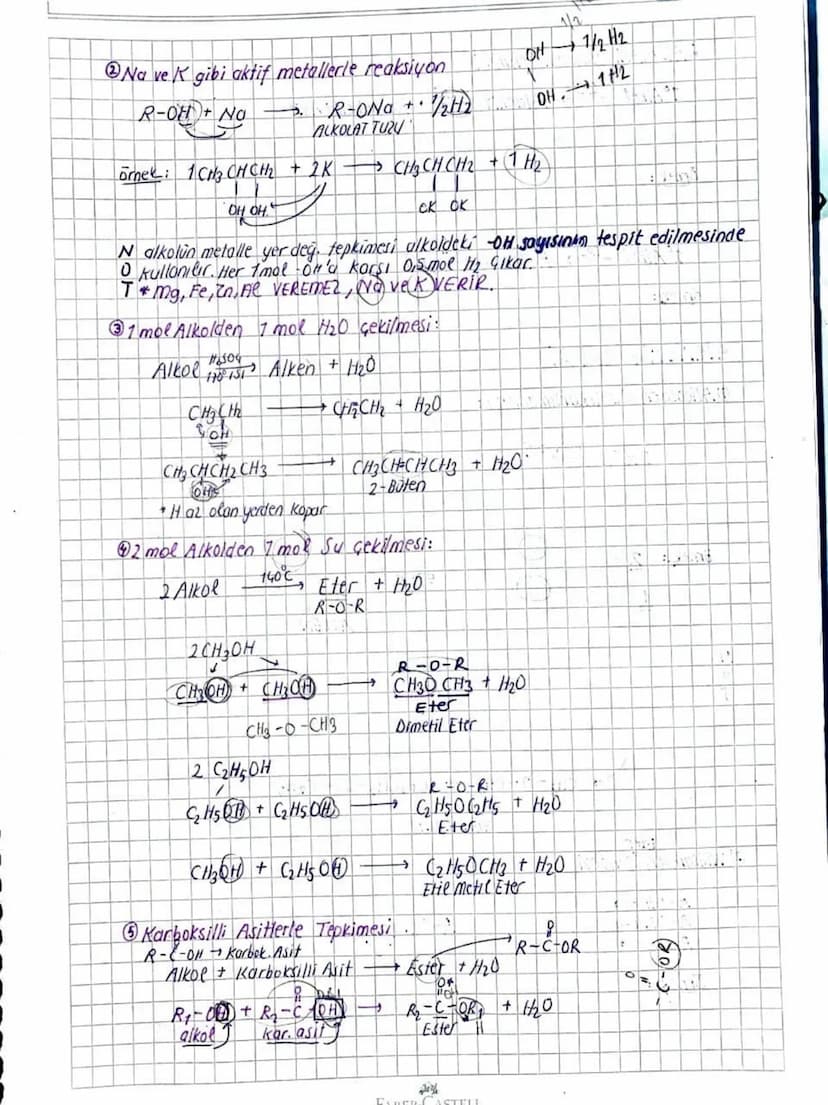 ② Na ve K gibi aktif metallerle reaksiyon
OH → 1/2 H2
OH. → 1 H2
R-OH + Na → R-ONa + 1/2H2
ALKOLAT TUZU
örnek: 1CH3CHCH2 + 2K → CH3CHCH2 + 1 H2
OH OH OK OK
N alkolün metalle yer değ. tepkimesi alkoldeki -OH sayısının tespit edilmesinde
O kullanılır. Her 1mol -OH'a karşı 0,5mol H2 çıkar.
T * Mg, Fe, Zn, Al VEREMEZ, Na ve K VERİR.
③ 1 mol Alkolden 1 mol H2O çekilmesi:
Alkol H2SO4 → Alken + H2O
CH3CH2 → CH2=CH2 + H2O
OH
CH3CHCH2CH3 → CH3CH=CHCH3 + H2O
OH 2-Büten
* H az olan yerden kopar
④ 2 mol Alkolden 1 mol Su çekilmesi:
2 Alkol 140°C → Eter + H2O
R-O-R
2CH3OH
R-O-R
CH3OH + CH3OH → CH3OCH3 + H2O
Eter
CH3-O-CH3 Dimetil Eter
2 C2H5OH
R-O-R
C2H5OH + C2H5OH → C2H5OC2H5 + H2O
Eter
CH3OH + C2H5OH → C2H5OCH3 + H2O
Etil Metil Eter
⑤ Karboksilli Asitlerle Tepkimesi
O
R-C-OH → Karbok. Asit R-C-OR
Alkol + Karboksilli Asit → Ester + H2O
O
-C-OR
R1-OH + R2-C-OH → R2-C-OR1 + H2O
alkol kar. asit Ester
FABER-CASTELL